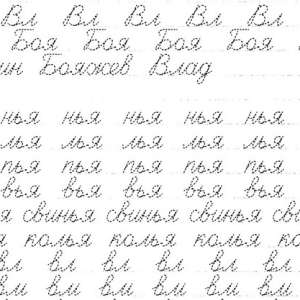 Вл Вл Вл Вл Вл
Боя Боя Боя Боя
ин Бояжев Влад
нья нья нья нья нья
лья лья лья лья лья
пья пья пья пья пья
вья вья вья вья вья
я свинья свинья свинья сви
я колья колья колья
вл вл вл вл вл вл
ви ви ви ви ви ви